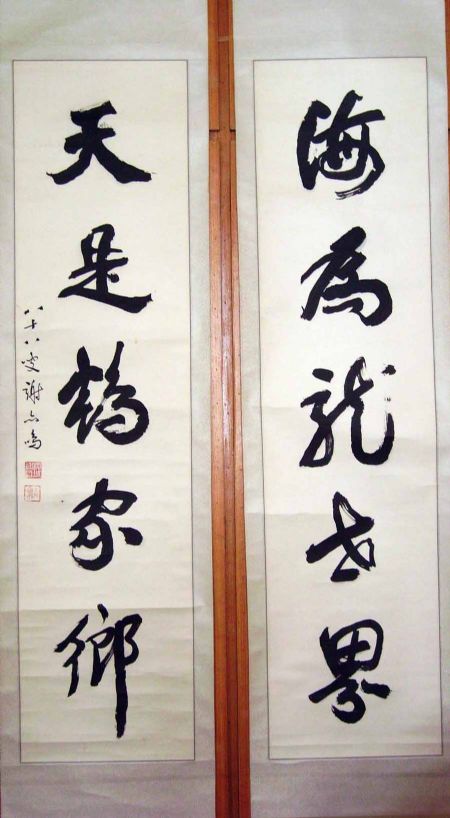 海為龍世界
天是鶴家鄉
八十八叟謝六鳴